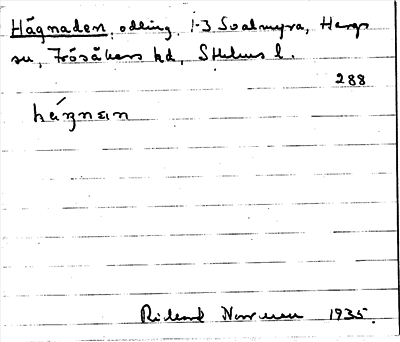 Hägnaden, odling, 1-3 Svalmyra, Hargs
sn, Frösåkers hd, Sthlms l.
288
hä́gnεɩn
Rickard Norrman 1935.